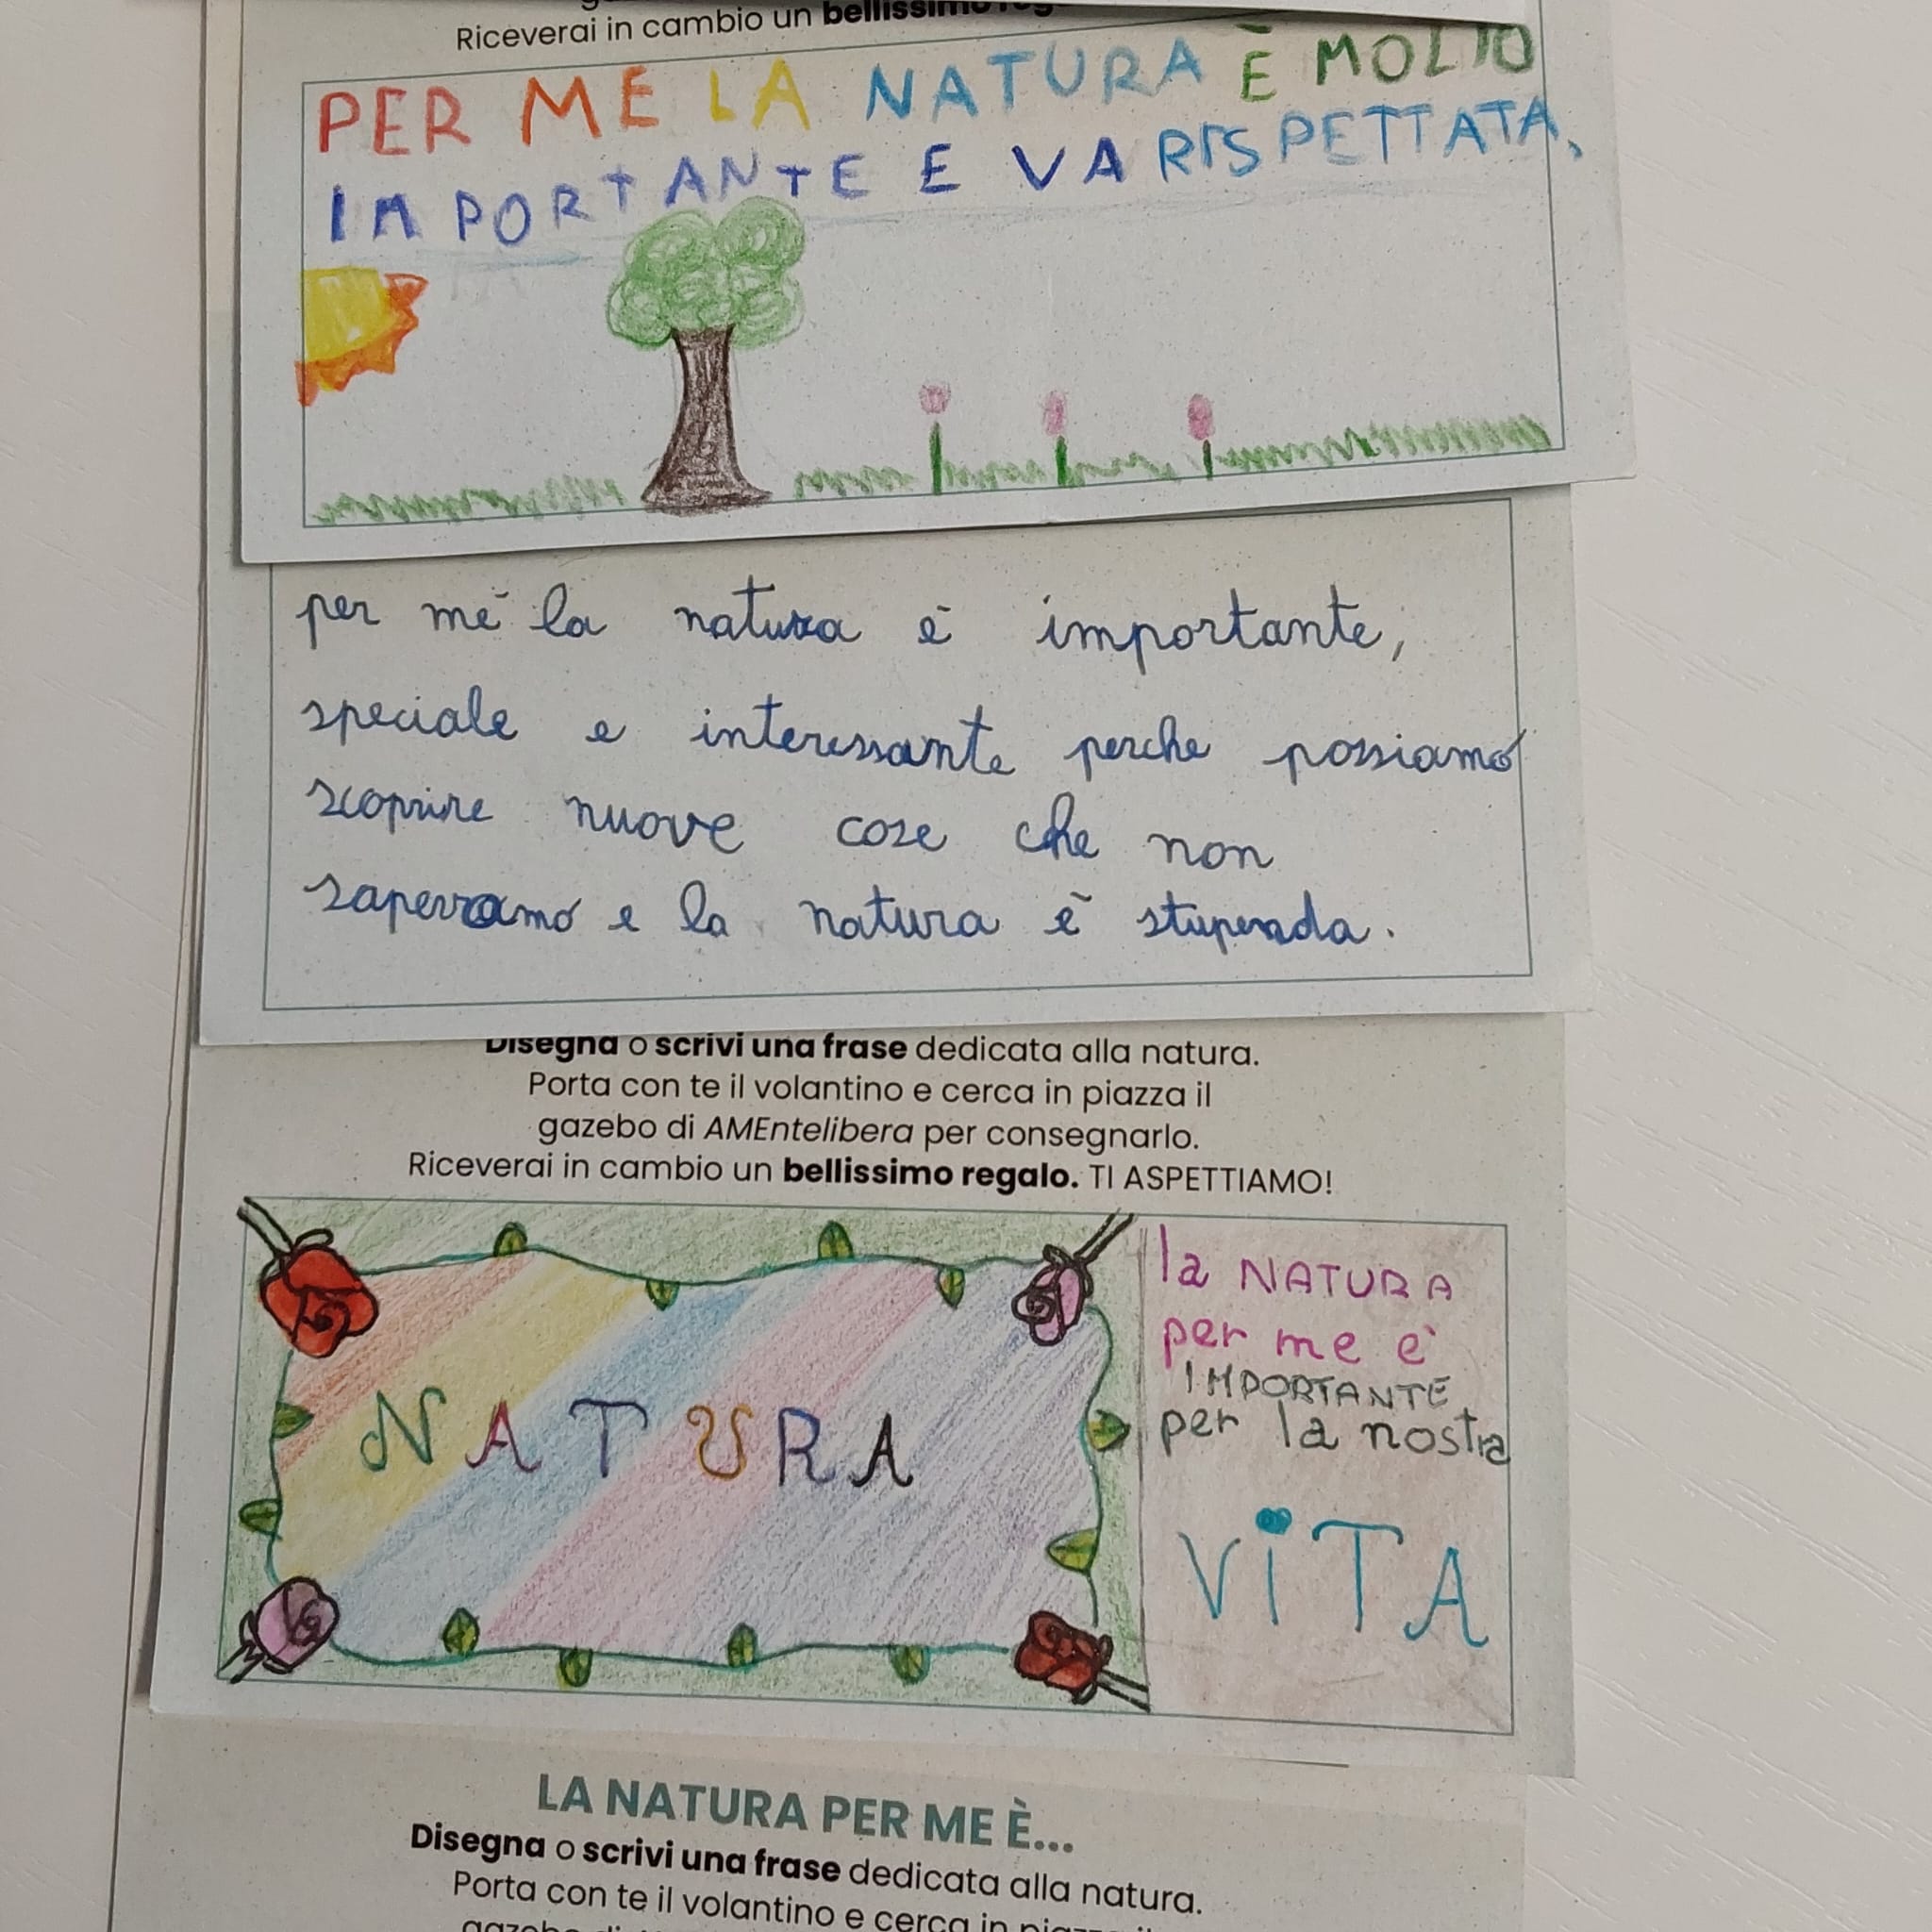 Riceverai in cambio un bellissimo
PER ME LA NATURA È MOLTO
IMPORTANTE E VA RISPETTATA.
per mè la natura è importante,
speciale e interessante perche possiamo
scoprire nuove cose che non
sapevamo e la natura è stupenda.
Disegna o scrivi una frase dedicata alla natura.
Porta con te il volantino e cerca in piazza il
gazebo di AMEntelibera per consegnarlo.
Riceverai in cambio un bellissimo regalo. TI ASPETTIAMO!
NATURA
la NATURA
per me e'
IMPORTANTE
per la nostra
ViTA
LA NATURA PER ME È...
Disegna o scrivi una frase dedicata alla natura.
Porta con te il volantino e cerca in piazza il